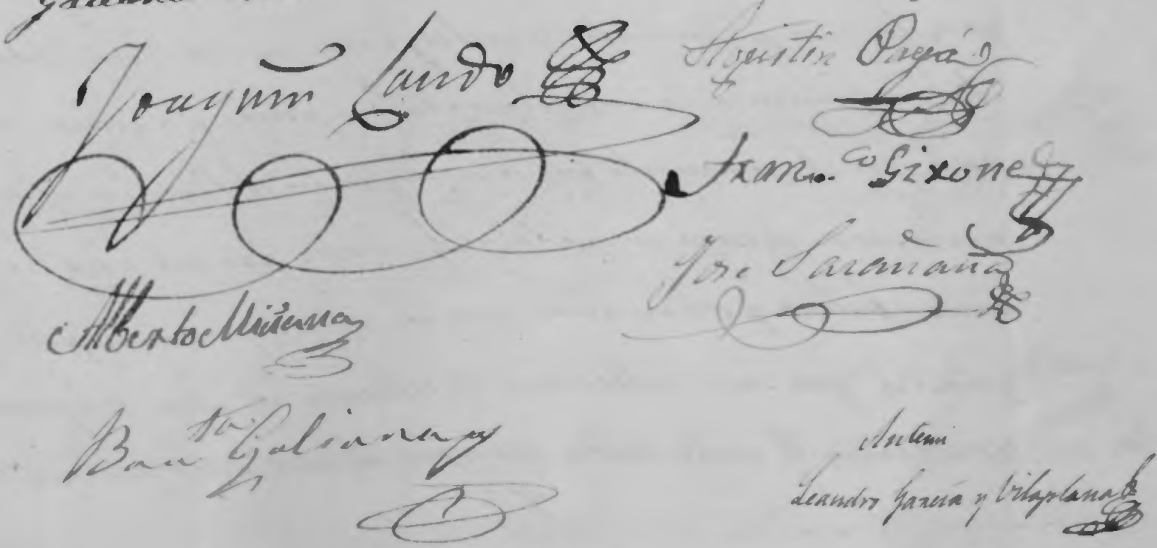 Joaquin Sando
Agustin Payá
Fran.co Gixones
Jose Sarañana
Alberto Miñana
Bau.ta Galiana
Antemi
Leandro García y Vilaplana